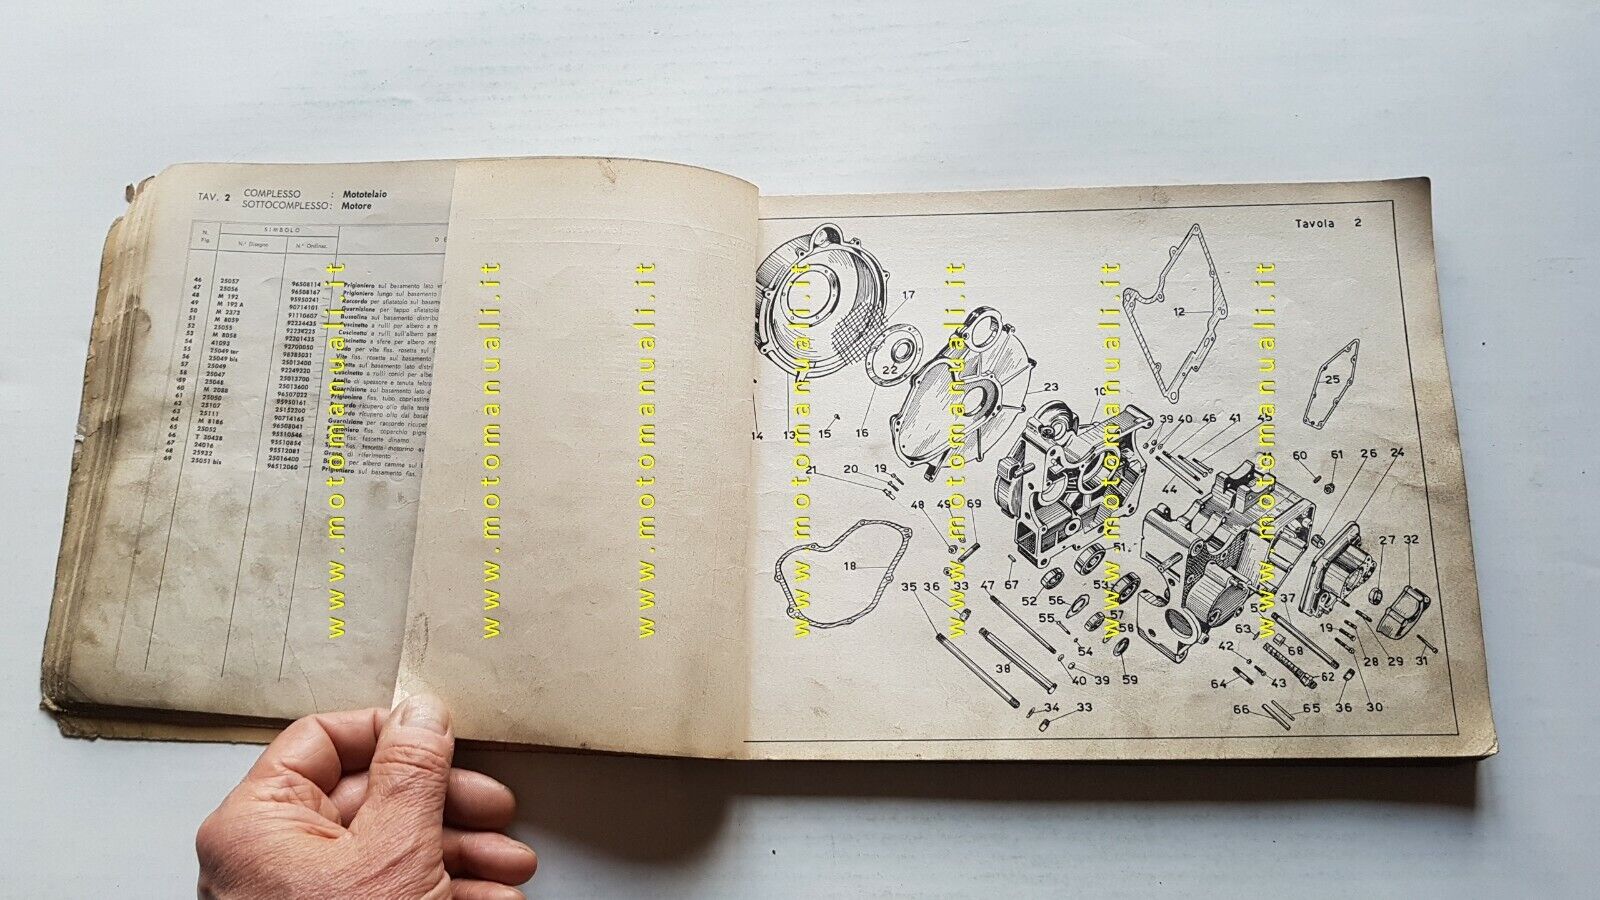 TAV. 2 COMPLESSO : Mototelaio
SOTTOCOMPLESSO: Motore
N. Fig.
SIMBOLO
N.° Disegno
N.° Ordinaz.
D E
46 25057 96508114 Prigioniero sul basamento lato
47 25056 96508167 Prigioniero lungo sul basamento
48 M 192 95950241 Raccordo per sfiatatoio sul
49 M 192 A 90714101 Guarnizione per tappo sfiatatoio
50 M 2372 91110607 Bussolina sul basamento
51 M 8059 92234435 Cuscinetto a rulli per albero a
52 25055 Cuscinetto a rulli sull'albero
53 M 8058 92201435 Cuscinetto a sfere per albero
54 41093 92700050 per vite fiss. rosetta sul
55 25049 ter 98785031 Vite fiss. rosetta sul basamento
56 25049 bis 25013400 sul basamento lato
57 25049 92249220 a rulli conici per albero
58 25047 25013700 di spessore e tenuta feltro
59 25048 25013600 Guarnizione sul basamento lato
60 M 2088 96507022 Prigioniero fiss. tubo
61 25050 95950161 ricupero olio dalla testa
62 25107 25152200 ricupero olio dal
63 25111 90714165 Guarnizione per raccordo
64 M 8186 96508041 fiss. coperchio
65 25052 95510546 fiss. fascette dinamo
66 T 20438 95510854 fiss. fascetta motorino
67 24016 95512081 Grano di riferimento
68 25932 25016400 per albero camme sul
69 25051 bis 96512060 Prigioniero sul basamento fiss.
Tavola 2
17
12
22
23
25
10
14
13
15
16
39 40 46 41 45
21 20 19
60 61 26 24
44
48 49 69
51
27 32
18
35 36 33 47 67
52
53
56
55
57
58
54
59
37
63
68
19
42
38
40 39
64
43
62
28 29 31
34 33
66
65
36 30
www.motomanuali.it
www.motomanuali.it
www.motomanuali.it
www.motomanuali.it
www.motomanuali.it
www.motomanuali.it
www.motomanuali.it